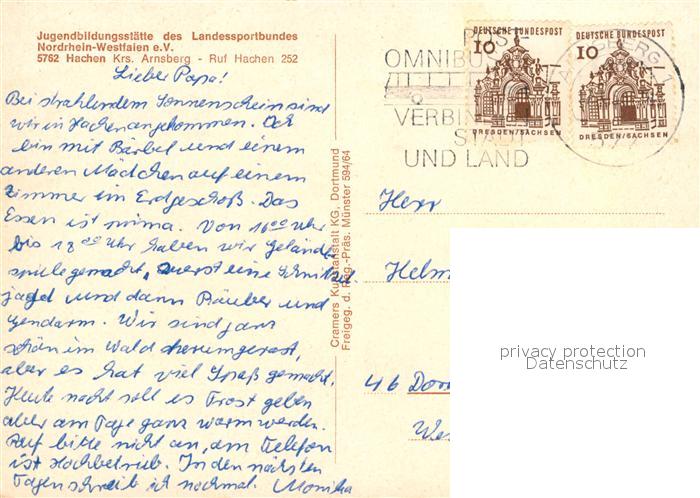 Jugendbildungsstätte des Landessportbundes
Nordrhein-Westfalen e.V.
5762 Hachen Krs. Arnsberg - Ruf Hachen 252
Lieber Papa!
Bei strahlendem Sonnenschein sind
wir in Hachen angekommen. Ich
bin mit Bärbel und einem
anderen Mädchen auf einem
Zimmer im Erdgeschoß. Das
Essen ist prima. Von 16 00 Uhr
bis 18 00 Uhr haben wir Gelände
spiele gemacht, zuerst eine Schnitzel
jagd und dann Räuber und
Gendarm. Wir sind ganz
schön im Wald herumgerast,
aber es hat viel Spaß gemacht.
Heute nacht soll es Frost geben
aber am Tage ganz warm werden.
Ruf bitte nicht an, am Telefon
ist Hochbetrieb. In den nächsten
Tagen schreib ich nochmal. Monika
Cramers Kunstanstalt KG, Dortmund
Freigeg. d. Reg.-Präs. Münster 594/64
POST-
OMNIBUS
VERBIN
STADT
UND LAND
DEUTSCHE BUNDESPOST
10
DRESDEN/SACHSEN
DEUTSCHE BUNDESPOST
10
DRESDEN/SACHSEN
ARNSBERG 1
Herr
Helm
46 Dor
We
privacy protection
Datenschutz